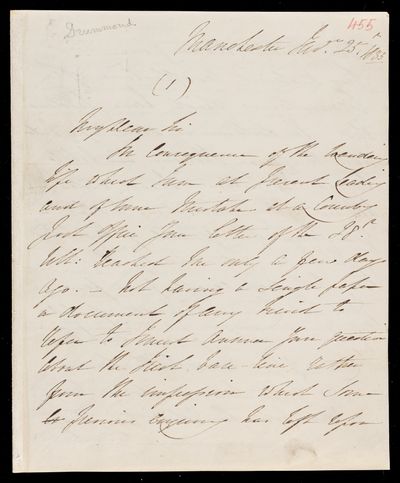 Drummond
455
Manchester Nov.r 25th 1833
(1)
My dear Sir
In consequence of the wandering
life which I am at present leading
and of some mistake at a Country
Post Office your letter of the 28th
Ult: reached me only a few days
ago. — Not having a single paper
or document of any kind to
refer to I must answer your question
about the Irish base-line, rather
from the impression which some
previous enquiry has left upon